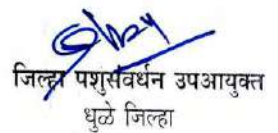 जिल्हा पशुसंवर्धन उपआयुक्त
धुळे जिल्हा